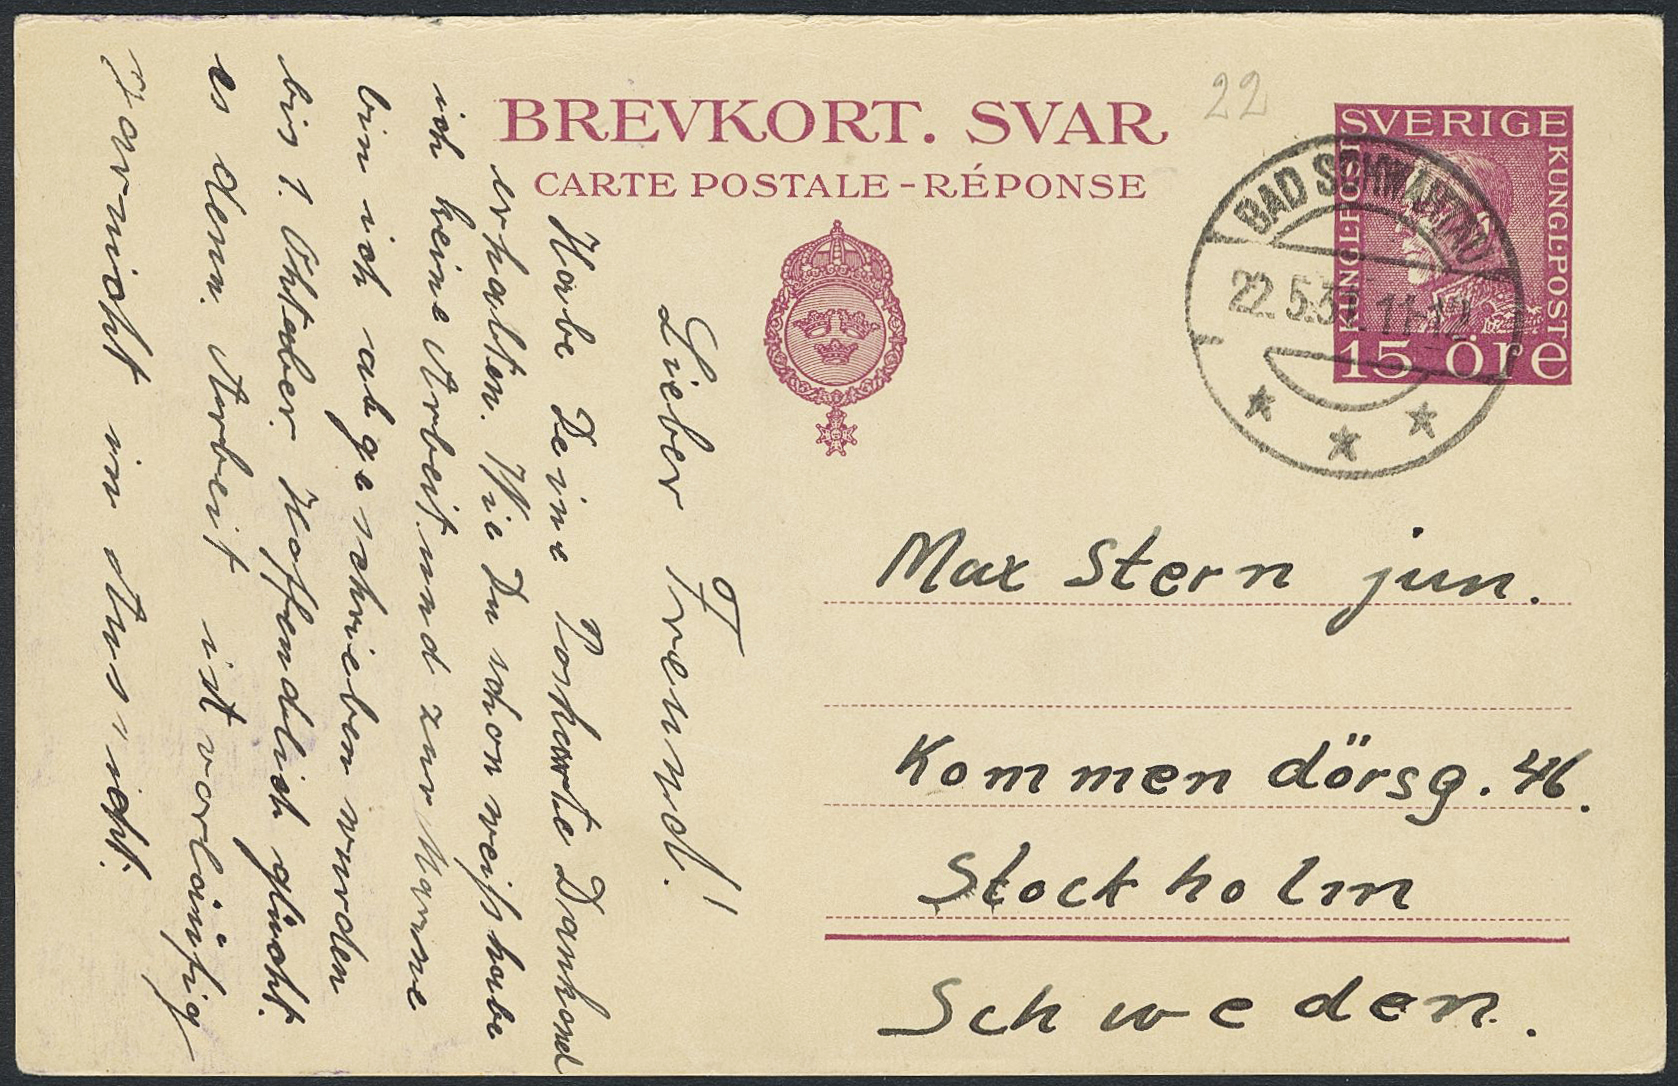 BREVKORT. SVAR
CARTE POSTALE - RÉPONSE
22
SVERIGE
KUNGL.POST
KUNGL.POST
15 öre
BAD SCHWARTAU
22.5.3 .11-12
Max Stern jun.
Kommendörsg. 46.
Stockholm
Schweden.
Lieber Freund!
Habe Deine Postkarte Dankend
erhalten. Wie Du schon weißt habe
ich keine Arbeit und zur Marine
bin ich abgeschrieben worden
bis 1. Oktober. Hoffendlich glückt
es denn. Arbeit ist vorläufig
garnicht in Aussicht.